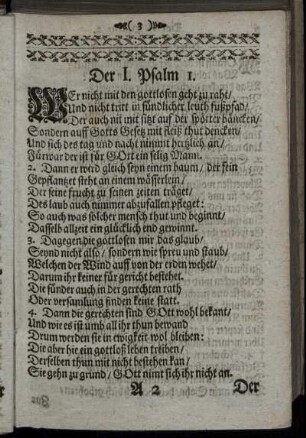 ( 3 )
Der I. Psalm 1.
WEr nicht mit den gottlosen geht zu raht/
Und nicht tritt in sündlicher leuth fußpfad/
Der auch nit mit sitzt auf der spötter bäncken/
Sondern auff Gotts Gesetz mit fleiß thut dencken/
Und sich des tag und nacht nimmt hertzlich an/
Fürwar der ist für GOtt ein selig Mann.
2. Dann er wird gleich seyn einem baum/ der fein
Gepflantzet steht an einem wässerlein/
Der seine frucht zu seinen zeiten träget/
Des laub auch nimmer abzufallen pfleget:
So auch was solcher mensch thut und beginnt/
Dasselb allzeit ein glücklich end gewinnt.
3. Dagegen die gottlosen mir das glaub/
Seynd nicht also/ sondern wie spreu und staub/
Welchen der Wind auff von der erden wehet/
Darum ihr keiner für gericht bestehet.
Die sünder auch in der gerechten rath
Oder versamlung finden keine statt.
4. Dann die gerechten sind GOtt wohl bekant/
Und wie es ist umb all ihr thun bewand
Drum werden sie in ewigkeit wol bleiben:
Die aber hie ein gottloß leben treiben/
Derselben thun mit nicht bestehen kan/
Sie gehn zu grund/ GOtt nimt sich ihr nicht an.
A 2 Der